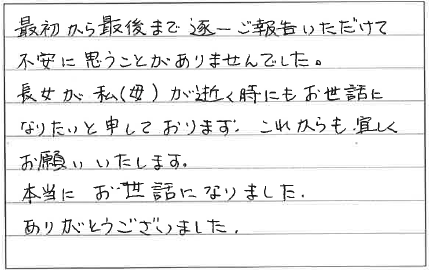 最初から最後まで逐一ご報告いただけて
不安に思うことがありませんでした。
長女が私(母)が逝く時にもお世話に
なりたいと申しております. これからも宜しく
お願いいたします。
本当にお世話になりました.
ありがとうございました.